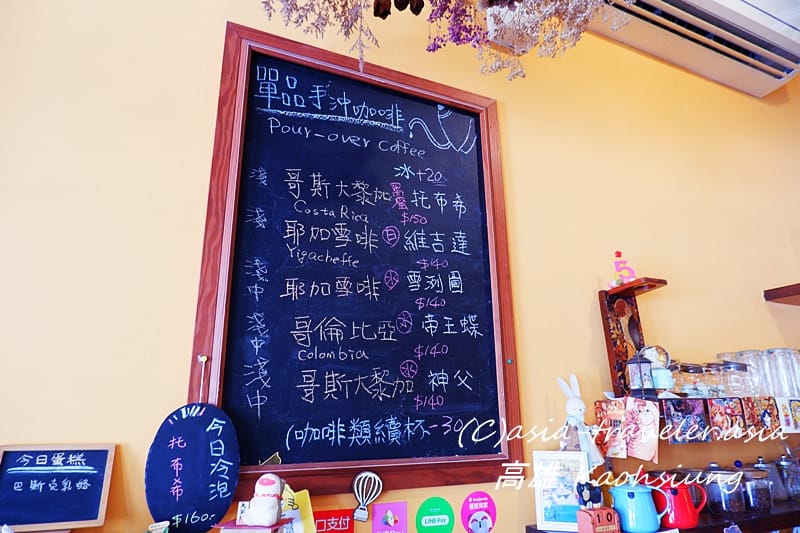 單品手沖咖啡
Pour-over coffee
冰+20
淺 哥斯大黎加 黑蜜 托布希
Costa Rica $150
淺 耶加雪啡 日 維吉達
Yigacheffe $140
淺中 耶加雪啡 水 雪冽圖
$140
淺中 哥倫比亞 水 帝王蝶
Colombia $140
淺中 哥斯大黎加 水 神父
$140
(咖啡類續杯-30)
今日冷泡
托布希
$160.
今日蛋糕
巴斯克乳酪
支付
LINE Pay
5
10
(C)asia-traveler.asia
高雄 Kaohsiung